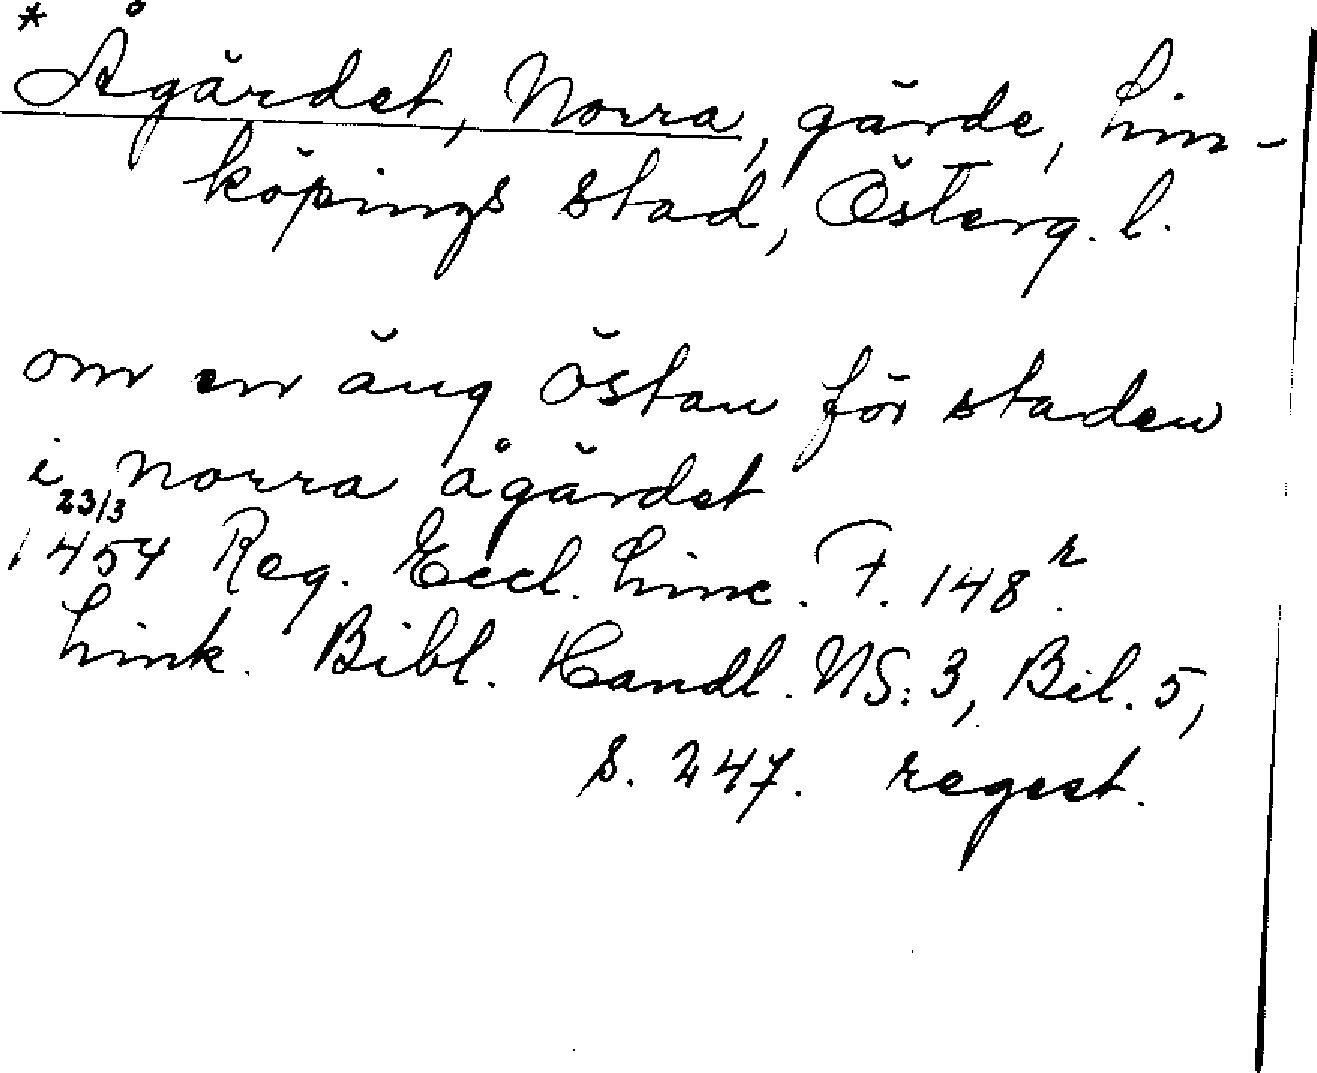 * Ågärdet, Norra, gärde, Lin-
köpings stad, Österg. l.
om en äng östan för staden
i norra ågärdet
23/3
1454 Reg. Eccl. Linc. F. 148 r.
Link. Bibl. Handl. NS: 3, Bil. 5,
s. 247. regest.